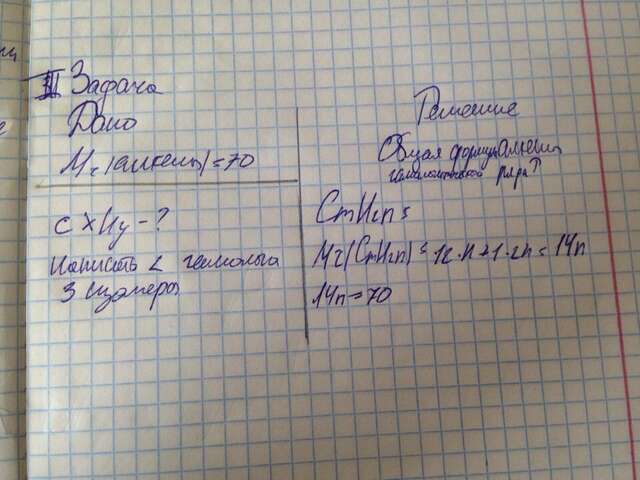 III Задача
Дано
Mr (алкены) = 70
CxHy - ?
Написать 2 гомолога
3 изомеры
Решение
Общая формула алкены
гомологической ряда?
CnH2n =
Mr(CnH2n) = 12·n+1·2n = 14n
14n = 70